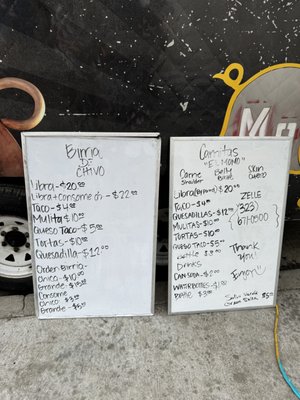 Birria
DE
CHIVO
Libra - $20.00
Libra + Consome ch - $22.00
Taco - $4.00
Mulita $10.00
Queso Taco - $5.00
Tortas - $10.00
Quesadilla - $12.00
Order Birria -
Chico - $10.00
Grande - $15.00
Consome
Chico - $3.00
Grande - $5.00
Carnitas
"EL MOMO"
Carne Shoulder
Belly
Skin Cuero
Libra $20.00
Taco - $4.00
QUESADILLAS - $12.00
MULITAS - $10.00
TORTAS - $10.00
QUESO TACO - $5.00
Bottle $8.00
Drinks
CAN SODA - $2.00
WATER BOTTLES - $1.00
$3.00
ZELLE
(323)
Thank
You
Enjoy
Salsa Verde
Green Salsa
$5.00